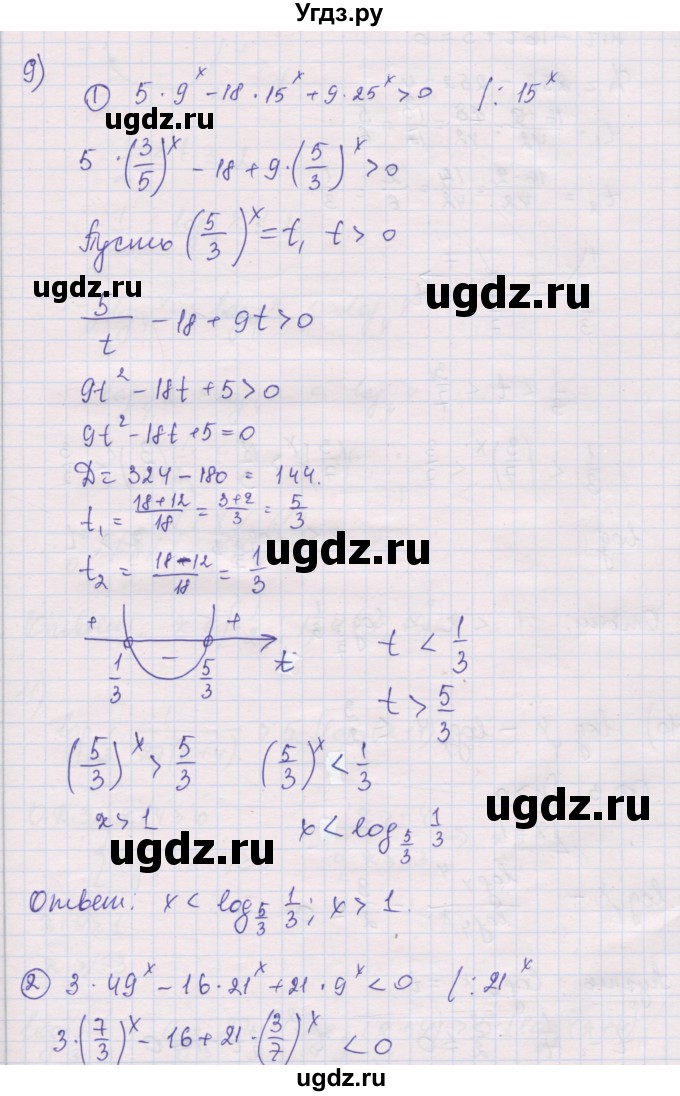 Угдз.ру
9)
① 5 · 9^x − 18 · 15^x + 9 · 25^x > 0 /: 15^x
5 · (3/5)^x − 18 + 9 · (5/3)^x > 0
Пусть (5/3)^x = t, t > 0
ugdz.ru
ugdz.ru
5/t − 18 + 9t > 0
9t² − 18t + 5 > 0
9t² − 18t + 5 = 0
D = 324 − 180 = 144.
t₁ = (18+12)/18 = (3+2)/3 = 5/3
ugdz.ru
t₂ = (18−12)/18 = 1/3
+ − +
1/3 5/3 t
t < 1/3
t > 5/3
(5/3)^x > 5/3 (5/3)^x < 1/3
ugdz.ru
x > 1 x < log_{5/3} 1/3
ugdz.ru
Ответ: x < log_{5/3} 1/3; x > 1.
② 3 · 49^x − 16 · 21^x + 21 · 9^x < 0 /: 21^x
3 · (7/3)^x − 16 + 21 · (3/7)^x < 0
ugdz.ru